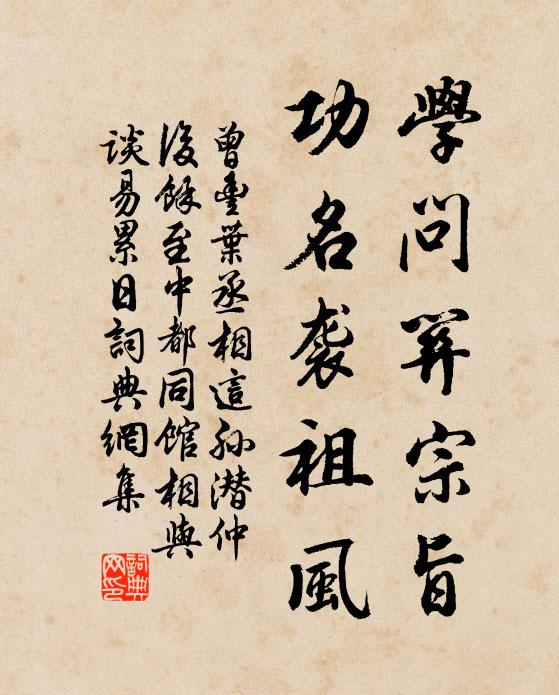 學問昇宗旨
功名袭祖風
曾豊葉丞相這孙潜仲
後餘至中都同館相與
談易累日詞典網集
詞典网印